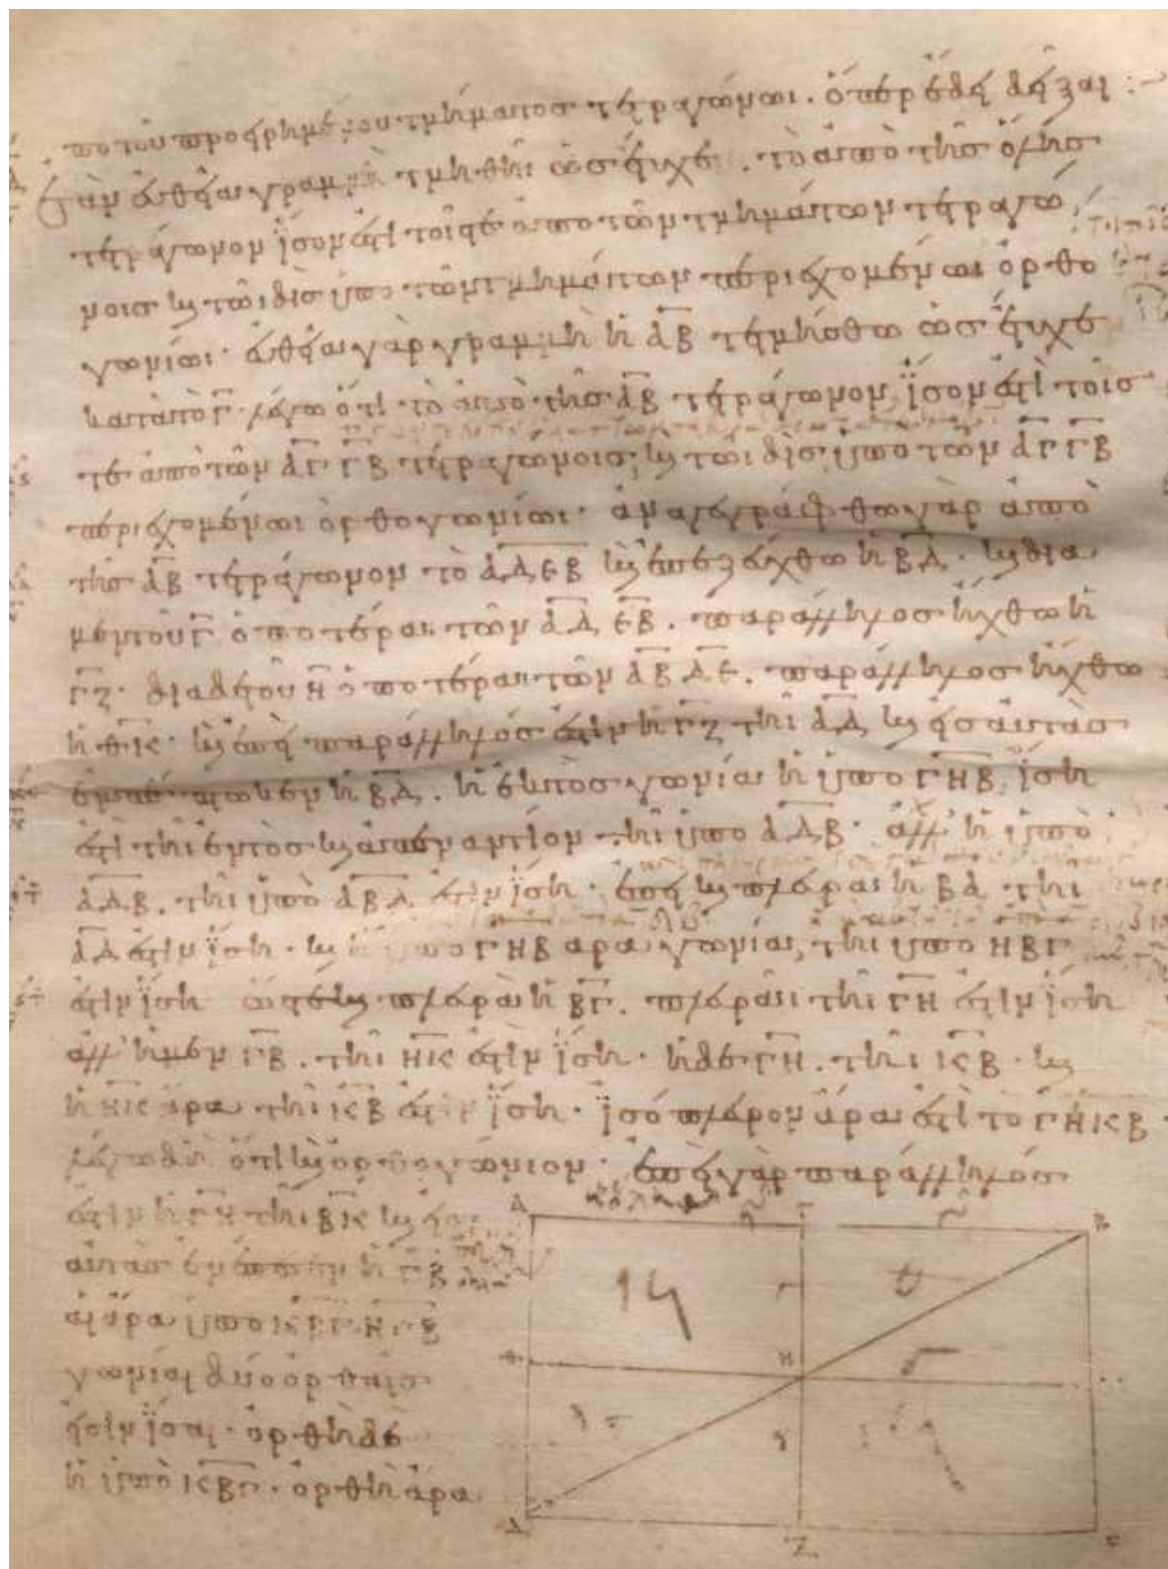 πο τοῦ προειρημένου τμήματος τετραγώνωι· ὅπερ ἔδει δεῖξαι :~
Ἐὰν εὐθεῖα γραμμὴ τμηθῆι ὡς ἔτυχεν. τὸ ἀπὸ τῆς ὅλης
τετράγωνον ἴσον ἐστὶ τοῖς τε ἀπὸ τῶν τμημάτων τετραγώ
νοις καὶ τῶι δὶς ὑπὸ τῶν τμημάτων περιεχομένωι ὀρθο
γωνίωι· εὐθεῖα γὰρ γραμμὴ ἡ ΑΒ τετμήσθω ὡς ἔτυχε
κατὰ τὸ Γ· λέγω ὅτι τὸ ἀπὸ τῆς ΑΒ τετράγωνον ἴσον ἐστὶ τοῖς
τε ἀπὸ τῶν ΑΓ ΓΒ τετραγώνοις καὶ τῶι δὶς ὑπὸ τῶν ΑΓ ΓΒ
περιεχομένωι ὀρθογωνίωι· ἀναγεγράφθω γὰρ ἀπὸ
τῆς ΑΒ τετράγωνον τὸ ΑΔΕΒ καὶ ἐπεζεύχθω ἡ ΒΔ· καὶ δια
μὲν τοῦ Γ ὁποτέραι τῶν ΑΔ ΕΒ. παράλληλος ἤχθω ἡ
ΓΖ· δια δὲ τοῦ Η ὁποτέραι τῶν ΑΒ ΔΕ. παράλληλος ἤχθω
ἡ ΘΚ· καὶ ἐπεὶ παράλληλός ἐστιν ἡ ΓΖ τῆι ΑΔ καὶ εἰς αὐτὰς
ἐμπέπτωκεν ἡ ΒΔ. ἡ ἐκτὸς γωνία ἡ ὑπὸ ΓΗΒ ἴση
ἐστὶ τῆι ἐντὸς καὶ ἀπεναντίον τῆι ὑπὸ ΑΔΒ· ἀλλ' ἡ ὑπὸ
ΑΔΒ. τῆι ὑπὸ ΑΒΔ ἐστιν ἴση· ἐπεὶ καὶ πλευρα ἡ ΒΑ τῆι
ΑΔ ἐστιν ἴση· καὶ ἡ ὑπο ΓΗΒ αρα γωνία, τῆι ὑπο ΗΒΓ
ἐστιν ἴση ὥστε καὶ πλευρὰ ἡ ΒΓ. πλευρᾶι τῆι ΓΗ ἐστιν ἴση
ἀλλ' ἡ μὲν ΓΒ. τῆι ΗΚ ἐστιν ἴση· ἡ δὲ ΓΗ. τῆι ΚΒ· καὶ
ἡ ΗΚ ἄρα τῆι ΚΒ ἐστιν ἴση· ἰσόπλευρον ἄρα ἐστὶ τὸ ΓΗΚΒ·
λέγω δὴ ὅτι καὶ ὀρθογώνιον· ἐπεὶ γὰρ παράλληλός
ἐστιν ἡ ΓΗ τῆι ΒΚ καὶ εἰς
αὐτὰς ἐμπέπτωκεν ἡ ΓΒ
αἱ ἄρα ὑπὸ ΚΒΓ ΗΓΒ
γωνίαι δύο ὀρθαῖς
εἰσὶν ἴσαι· ὀρθὴ δὲ
ἡ ὑπὸ ΚΒΓ· ὀρθὴ ἄρα
Α Γ Β
Η
Δ Ζ Ε